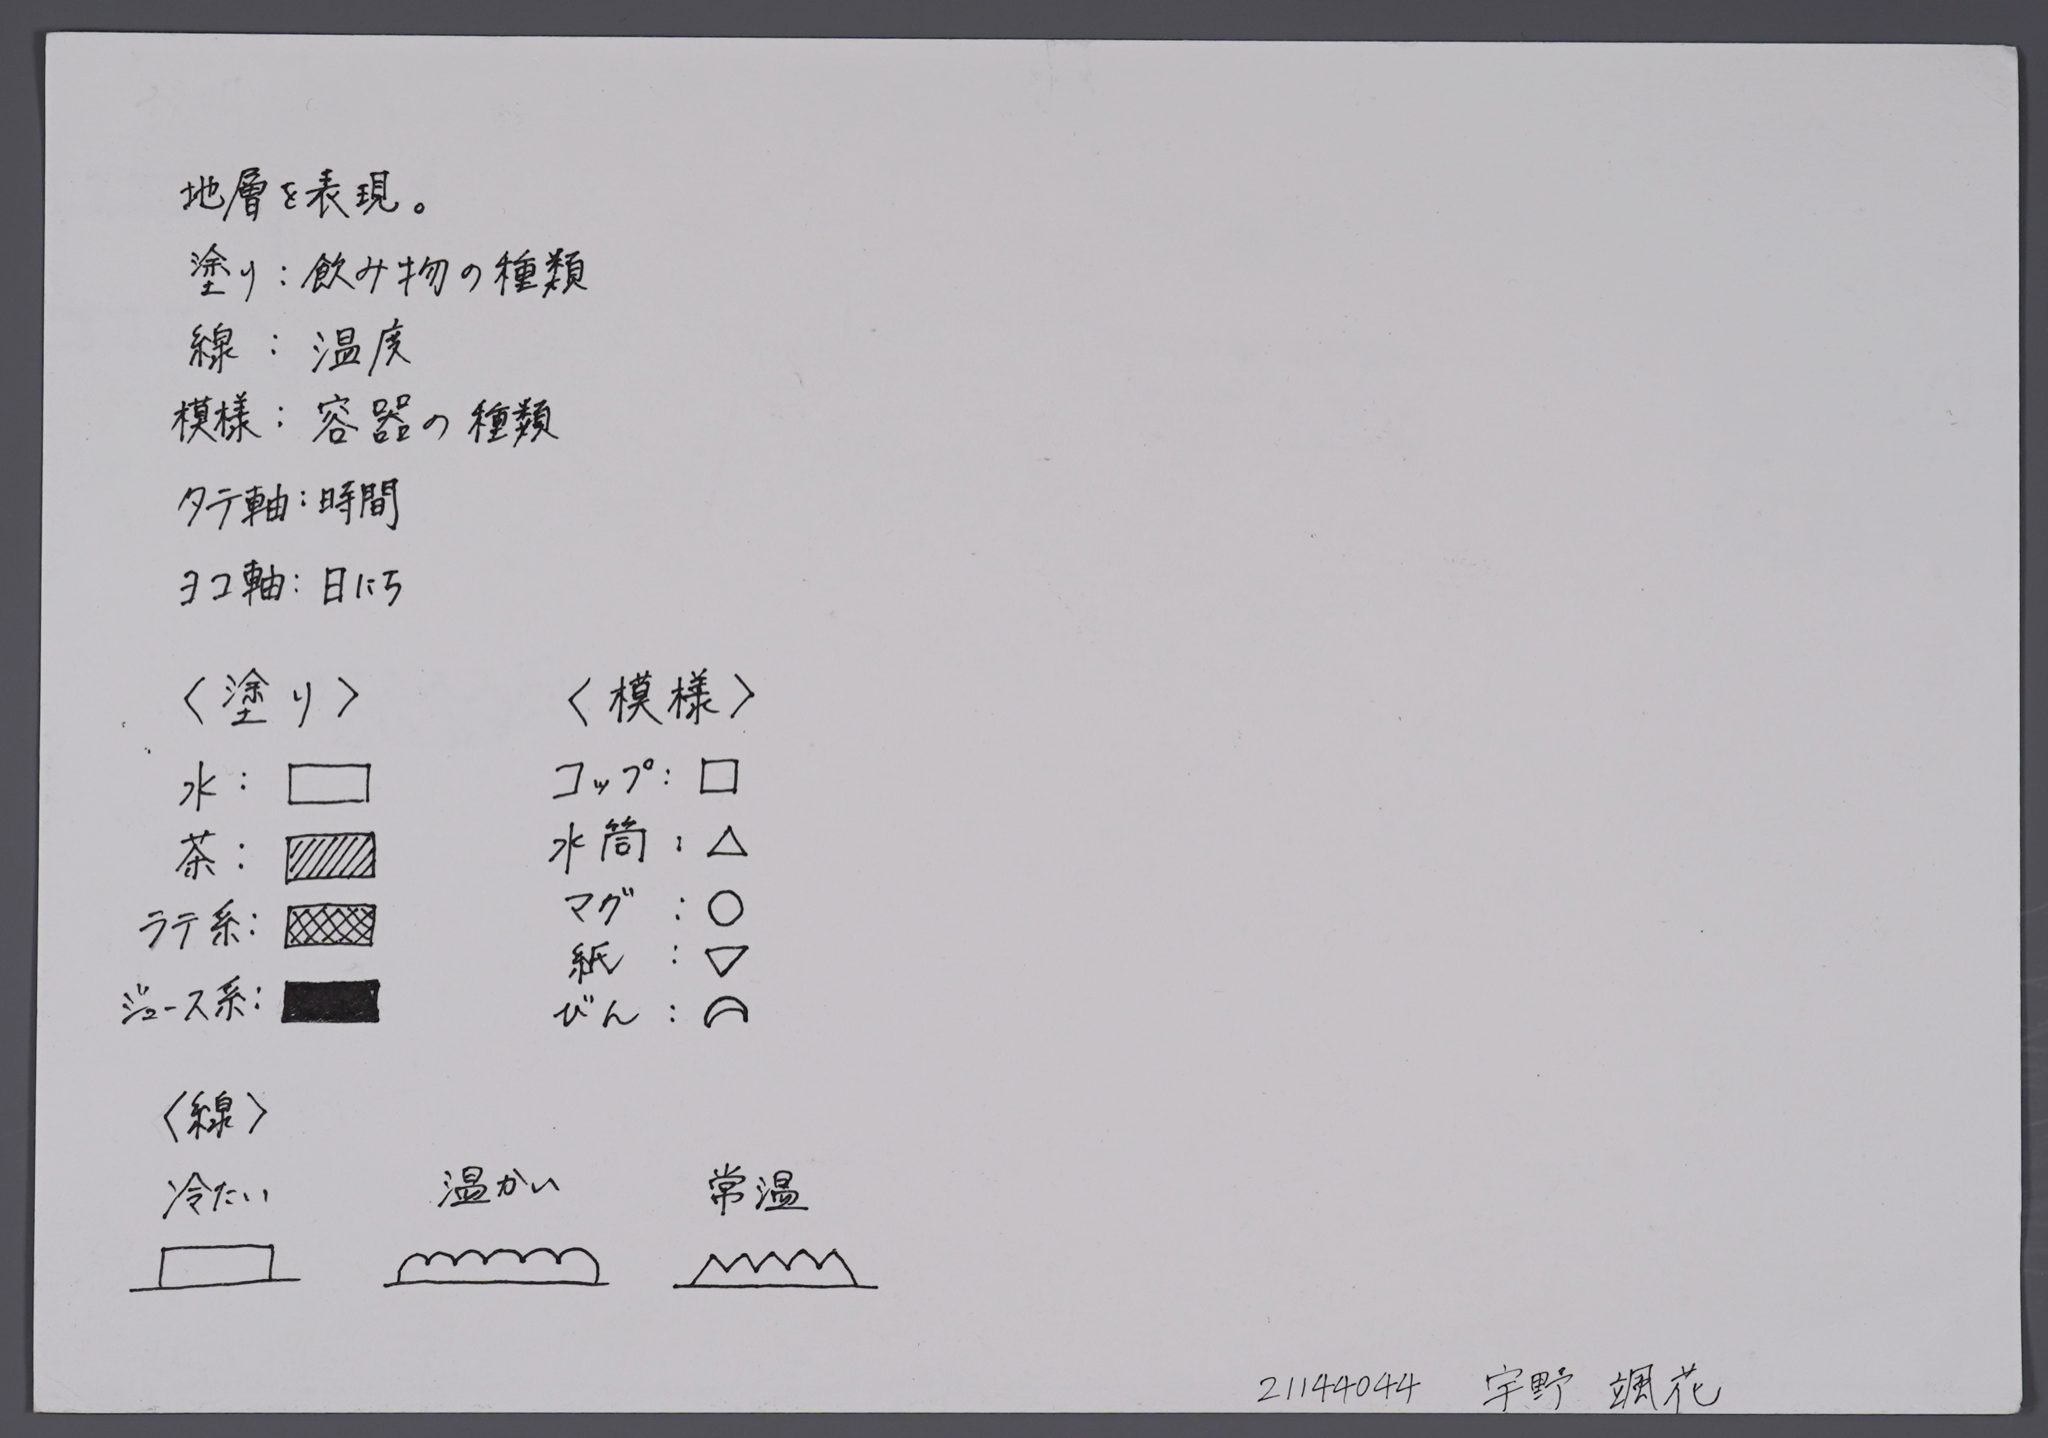 地層を表現。
塗り:飲み物の種類
線:温度
模様:容器の種類
タテ軸:時間
ヨコ軸:日にち
〈塗り〉
水:
茶:
ラテ系:
ジュース系:
〈模様〉
コップ:
水筒:
マグ:
紙:
びん:
〈線〉
冷たい 温かい 常温
21144044 宇野 颯花